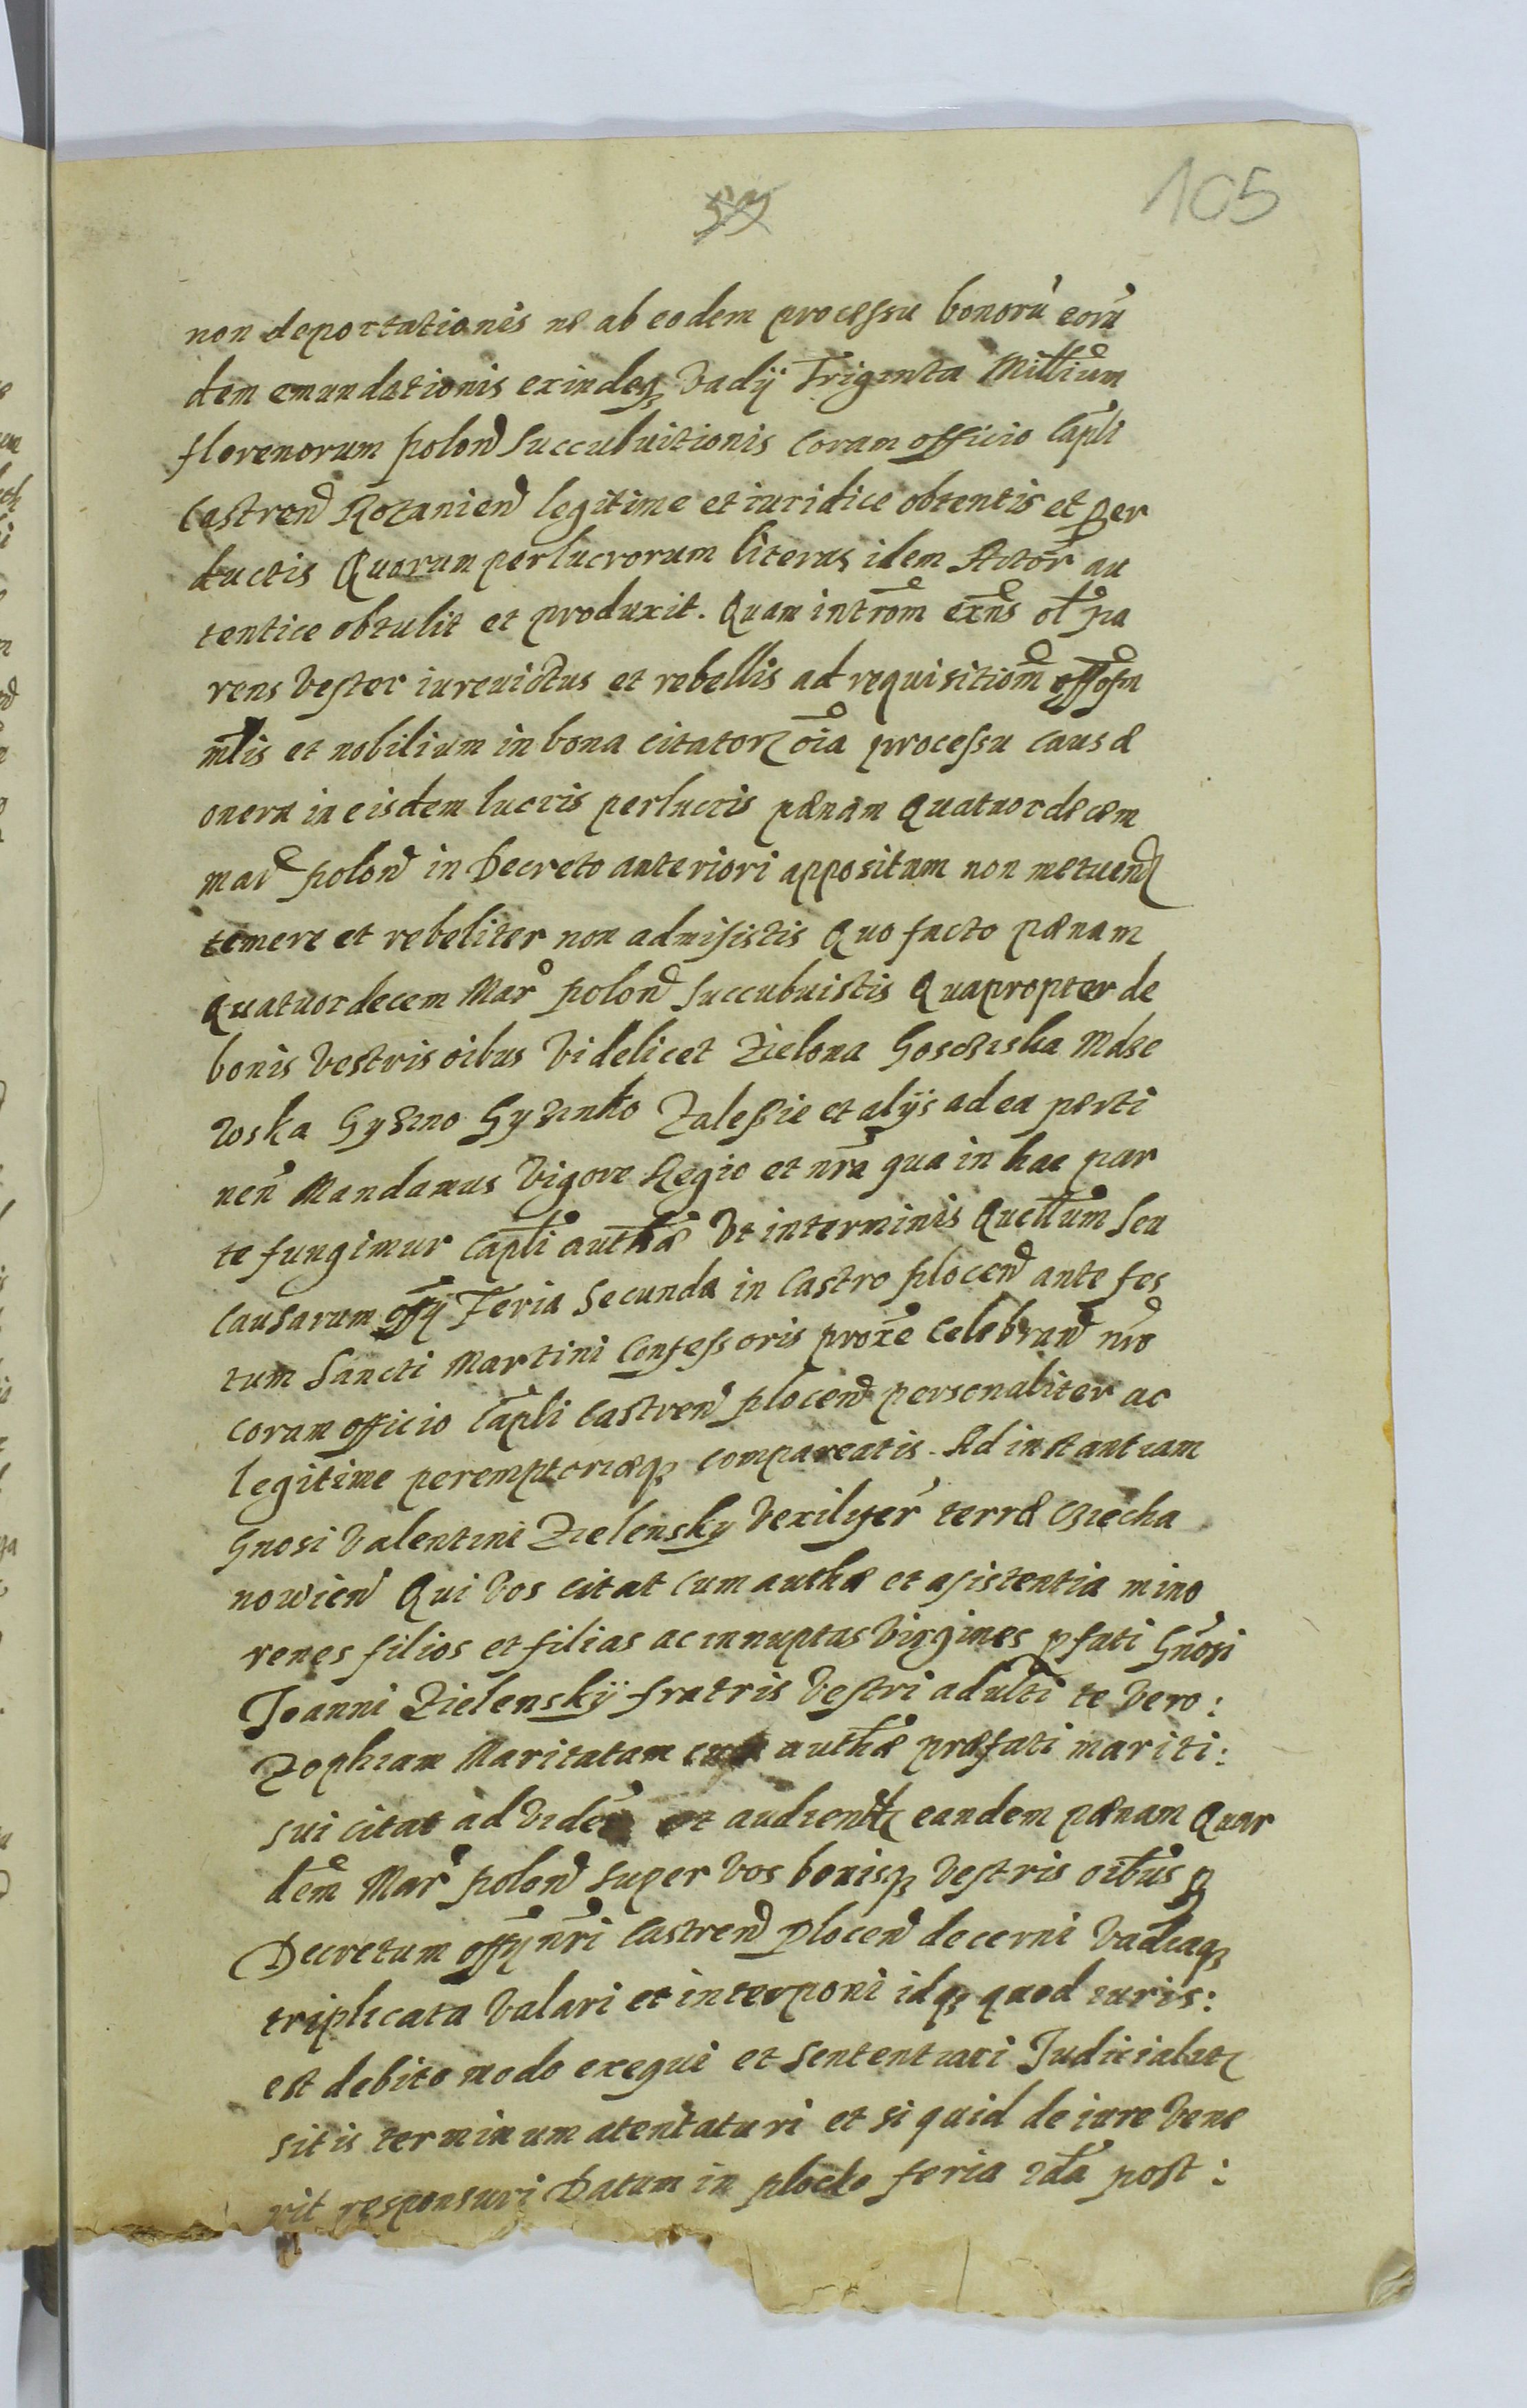 59
105
non deportationis nę ab eodem processu bonorũ eorũ
dem emundationis exindeq; vadÿ Triginta Milliũm
florenorum polon̄ Succubuitionis Coram officio Cap̃li
Castren̄ Rozanien̄ legitime et iuridice obtentis et per
ductis Quorum perlucrorum literas idem Actor au
tentice obtulit et produxit. Quam introm̃ exñs ol̃ pa
rens vester iurevictus et rebellis ad requisitiom̃
mĩlis et nobilium in bona citator; oĩa processu causæ
onera in eisdem lucris perlucris pænam Quatuordecæm
mar̃ polon̄ in Decreto anteriori appositam non metuen̄
temere et rebeliter non admisistis Quo facto pænam
Quatuordecem Mar̃ polon̄ Succubuistis Quapropter de
bonis vestris oĩbus videlicet Zielona Gosciska Mdze
woska Gyzino Gyzinko Zalessie et alÿs ad ea perti
neñ Mandamus vigore Regio et nr̃a qua in hac par
te fungimur Cap̃li auth̃æ Vt interminis Quel̃lum seu
Causarum off̃ÿ Feria Secunda in Castro plocen̄ ante fes
tum Sancti Martini Confessoris prox̃e celebran̄ nr̃o
coram officio Cap̃li Castren̄ plocen̄ personaliter ac
legitime peremptoriæq; compareatis. Ad instantiam
Gnosi Valentini Zielensky vexilyfer̃ terræ Cziecha
nowien̄ Qui vos citat cum authæ et asistentia mino
renes filios et filias ac innuptas virgines p̃fati Gñosi
Joanni Zielenskÿ fratris vestri adulti te vero:
Zophiam Maritatam cum auth̃æ præfati mariti:
sui citat ad viden̄ et audien̄ eandem pænam Quar
dem̃ Mar̃ polon̄ super vos bonisq; vestris oĩbus p
Decretum off̃ÿ nr̃i Castren̄ plocen̄ decerni vadiaq;
triplicata valari et interponi idq; quod iuris:
est debito modo exequi et sententiari Judicialit;
sitis terminum atentaturi et si quid de iure vene
rit responsuri Datum in plocko feria 2da post: